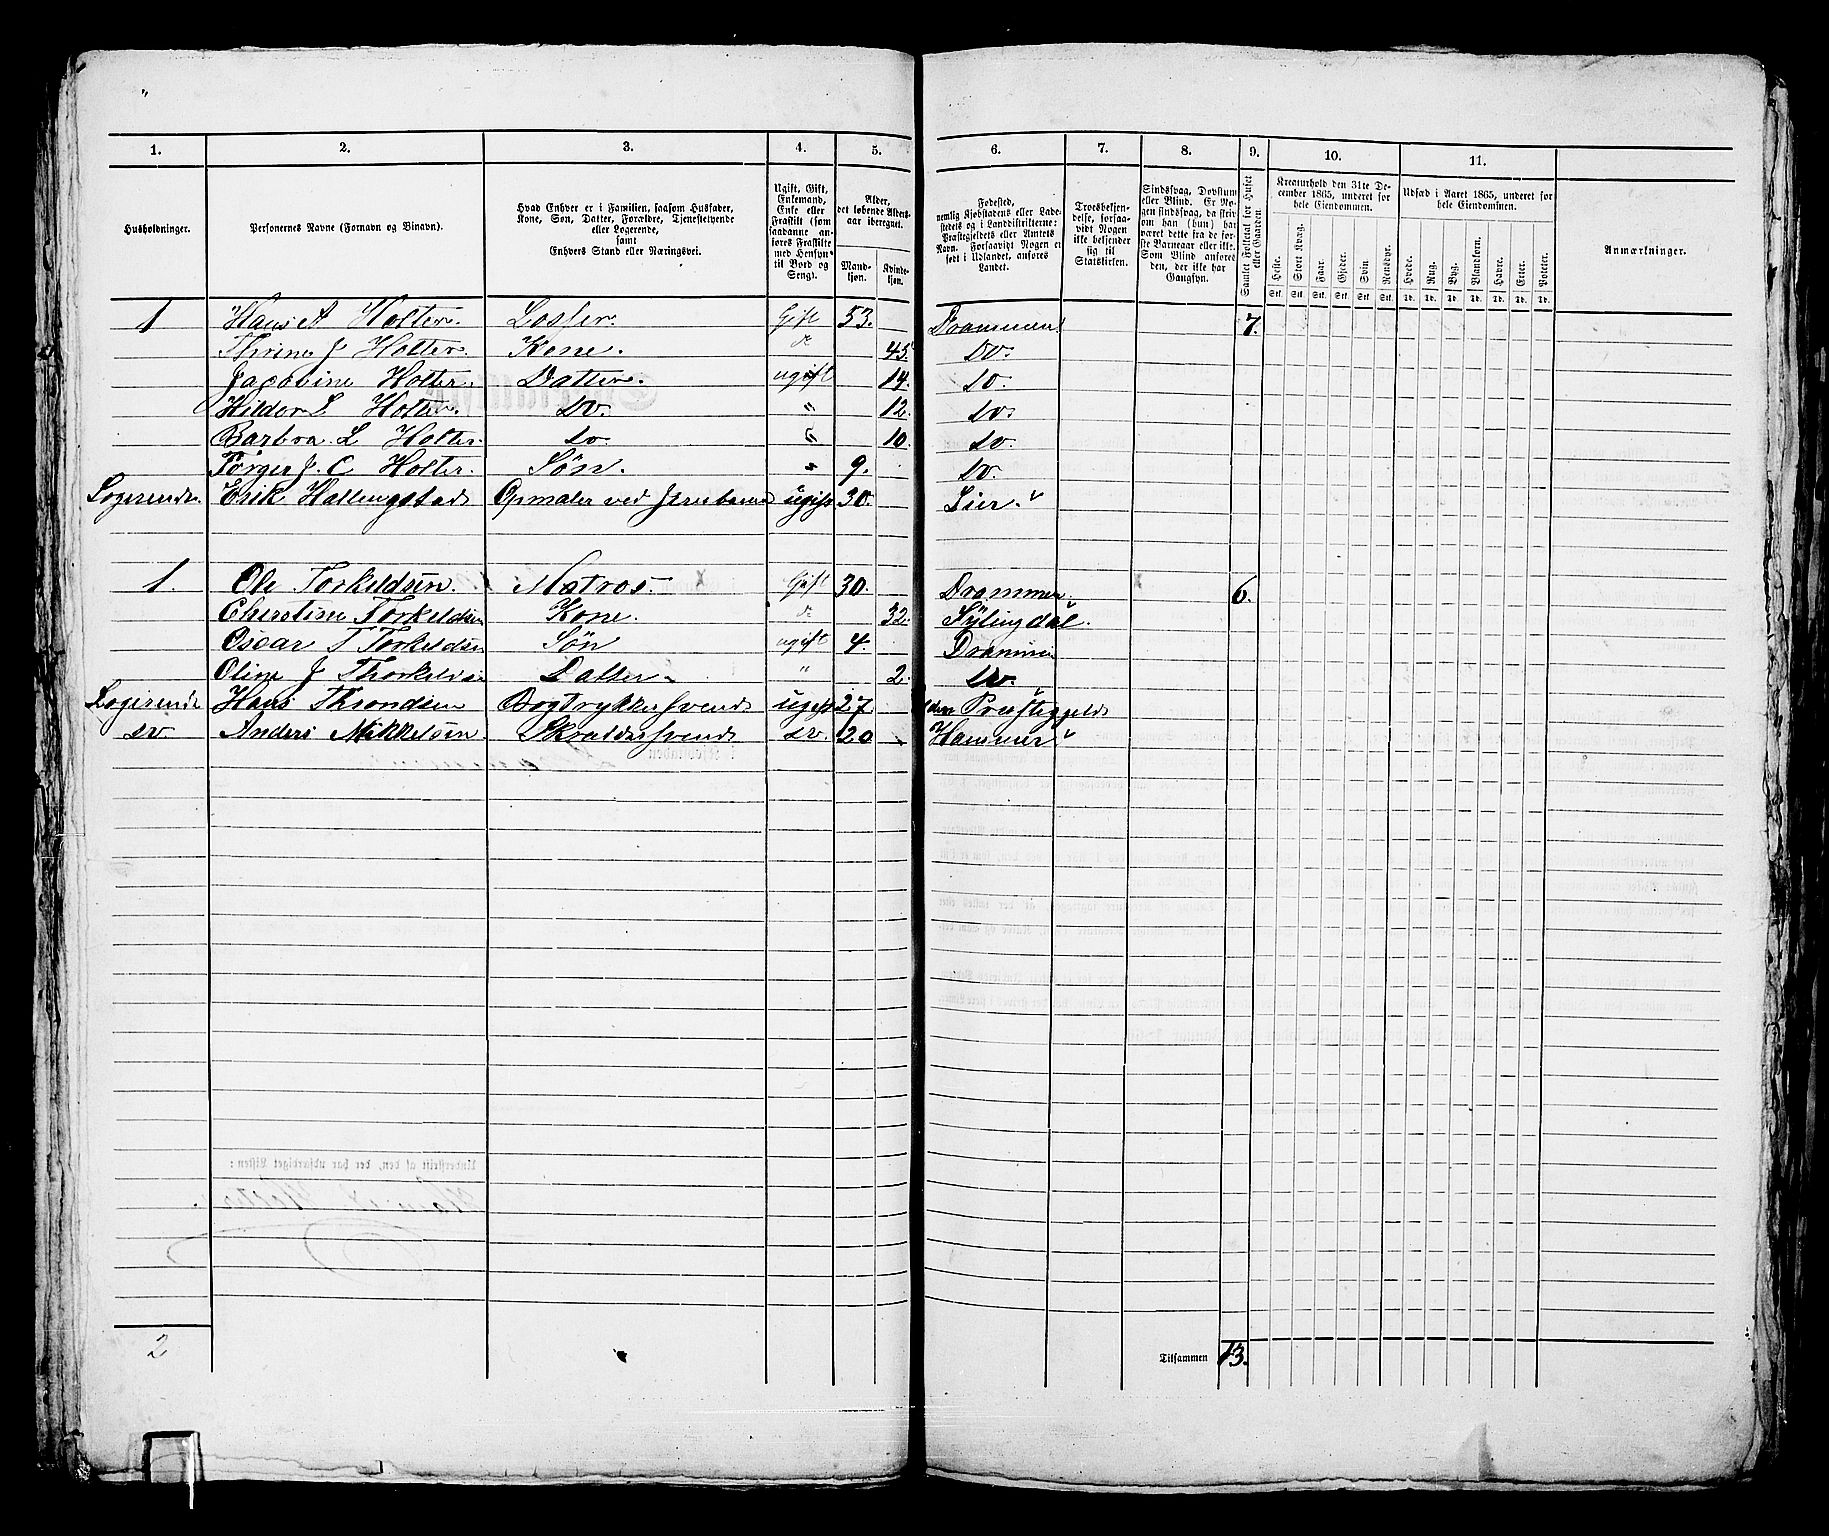 1. 2. 3. 4. 5. 6. 7. 8. 9. 10. 11.
Husholdninger. Personernes Navne (Fornavn og Binavn). Hvad Enhver er i Familien, saasom Husfader, Kone, Søn, Datter, Forældre, Tjenestetyende eller Logerende, samt Enhvers Stand eller Næringsvei. Ugift, Gift, Enkemand, Enke eller Fraskilt (saasaadanne anføres Fraskilte med Hensyn til Bord og Seng). Alder, det løbende Aldersaar iberegnet. Mandkjøn. Kvindekjøn. Fødested, nemlig Kjøbstadens eller Ladestedets og i Landdistrikterne: Præstegjeldets eller Amtets Navn. Forsaavidt Nogen er født i Udlandet, anføres Landet. Troesbekjendelse, forsaavidt Nogen ikke bekjender sig til Statskirken. Sindssvag, Døvstum eller Blind. Er Nogen sindssvag, da skriv om han (hun) har været dette fra de første Barneaar eller ikke. Som Blind anføres den, der ikke har Gangsyn. Samlet Folketal for Huset eller Gaarden. Kreaturhold den 31te December 1865, underet for hele Eiendommen. Udsæd i Aaret 1865, underet for hele Eiendommen. Anmærkninger.
Heste. Stort Kvæg. Faar. Gjeder. Svin. Rensdyr. Hvede. Rug. Byg. Blandkorn. Havre. Erter. Poteter.
Stk. Stk. Stk. Stk. Stk. Stk. Td. Td. Td. Td. Td. Td. Td.
1 Hans A Holter. Losser. Gift 53. Drammen 7.
Thrine J Holter. Kone. d 45. Do.
Jacobine Holter. Datter. ugift 14. do.
Hildor L Holter. do. " 12. do.
Barbra L Holter. do. " 10. do.
Torger J. C Holter. Søn. " 9. do.
Logerende Erik Hallingstad Opmaler ved ugift 30. Lier.
1. Ole Torkeldsen. Matros. x Gift 30. Drammen. x 6.
Christine Torkeldsen Kone. d 32. Sylingdal.
Oscar T Torkeldsen Søn ugift 4. Drammen
Oline J Thorkeldsen Datter " 2. do.
Logerende Hans Throndsen Bogtrykkersvend ugift 27. Præstegjeld
do Anders Mikkelsen do. 20 Hammer
2 Tilsammen 13.